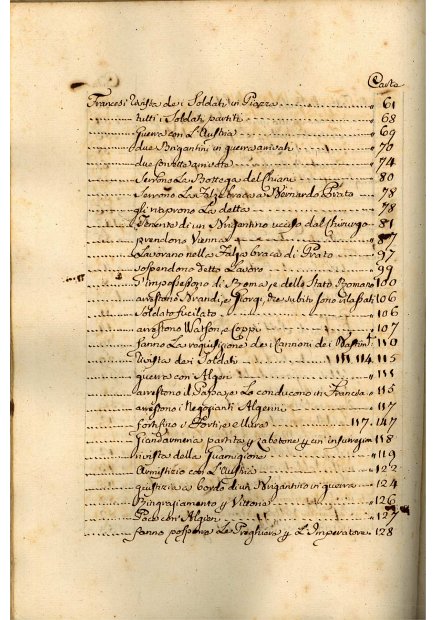 Carta
Francesi Rivista dei Soldati in Piazza 61
tutti i Soldati partiti 68
Guerra con L'Austria 69
due Brigantini in guerra arrivati 70
due Corvette arrivate 74
Serrono La Bottega del Chiani 80
Serrono La Falze braca a Bernardo Prato 78
gli riaprono La detta 78
Tenente di un Brigantino ucciso dal Chirurgo 81
prendono Vienna 87
Lavorano nella Falze braca di Prato 97
sospendono detto Lavoro 99
S'impossessono di Roma, e dello Stato Romano 100
arrestono Brandi, e Giorgi, che subito sono rilassati 106
Soldato fucilato 106
arrestono Watson, e Coppi 107
fanno La requisizione dei Cannoni dei 110
Rivista dei Soldati 111. 114. 115
guerra con Algeri 111
arrestono il Papa, e Lo conducono in Francia 115
arrestono i Negozianti Algerini 117
fortifino i Forti, e Mura 117. 147
Giandarmeria partita 118
rivista della Guarnigione 119
Armistizio con L'Austria 122
giustizia a bordo di un Brigantino in guerra 124
Ringraziamento p Vittoria 126
Pace con Algeri 127
fanno posporre Le Preghiere p L'Imperatore 128